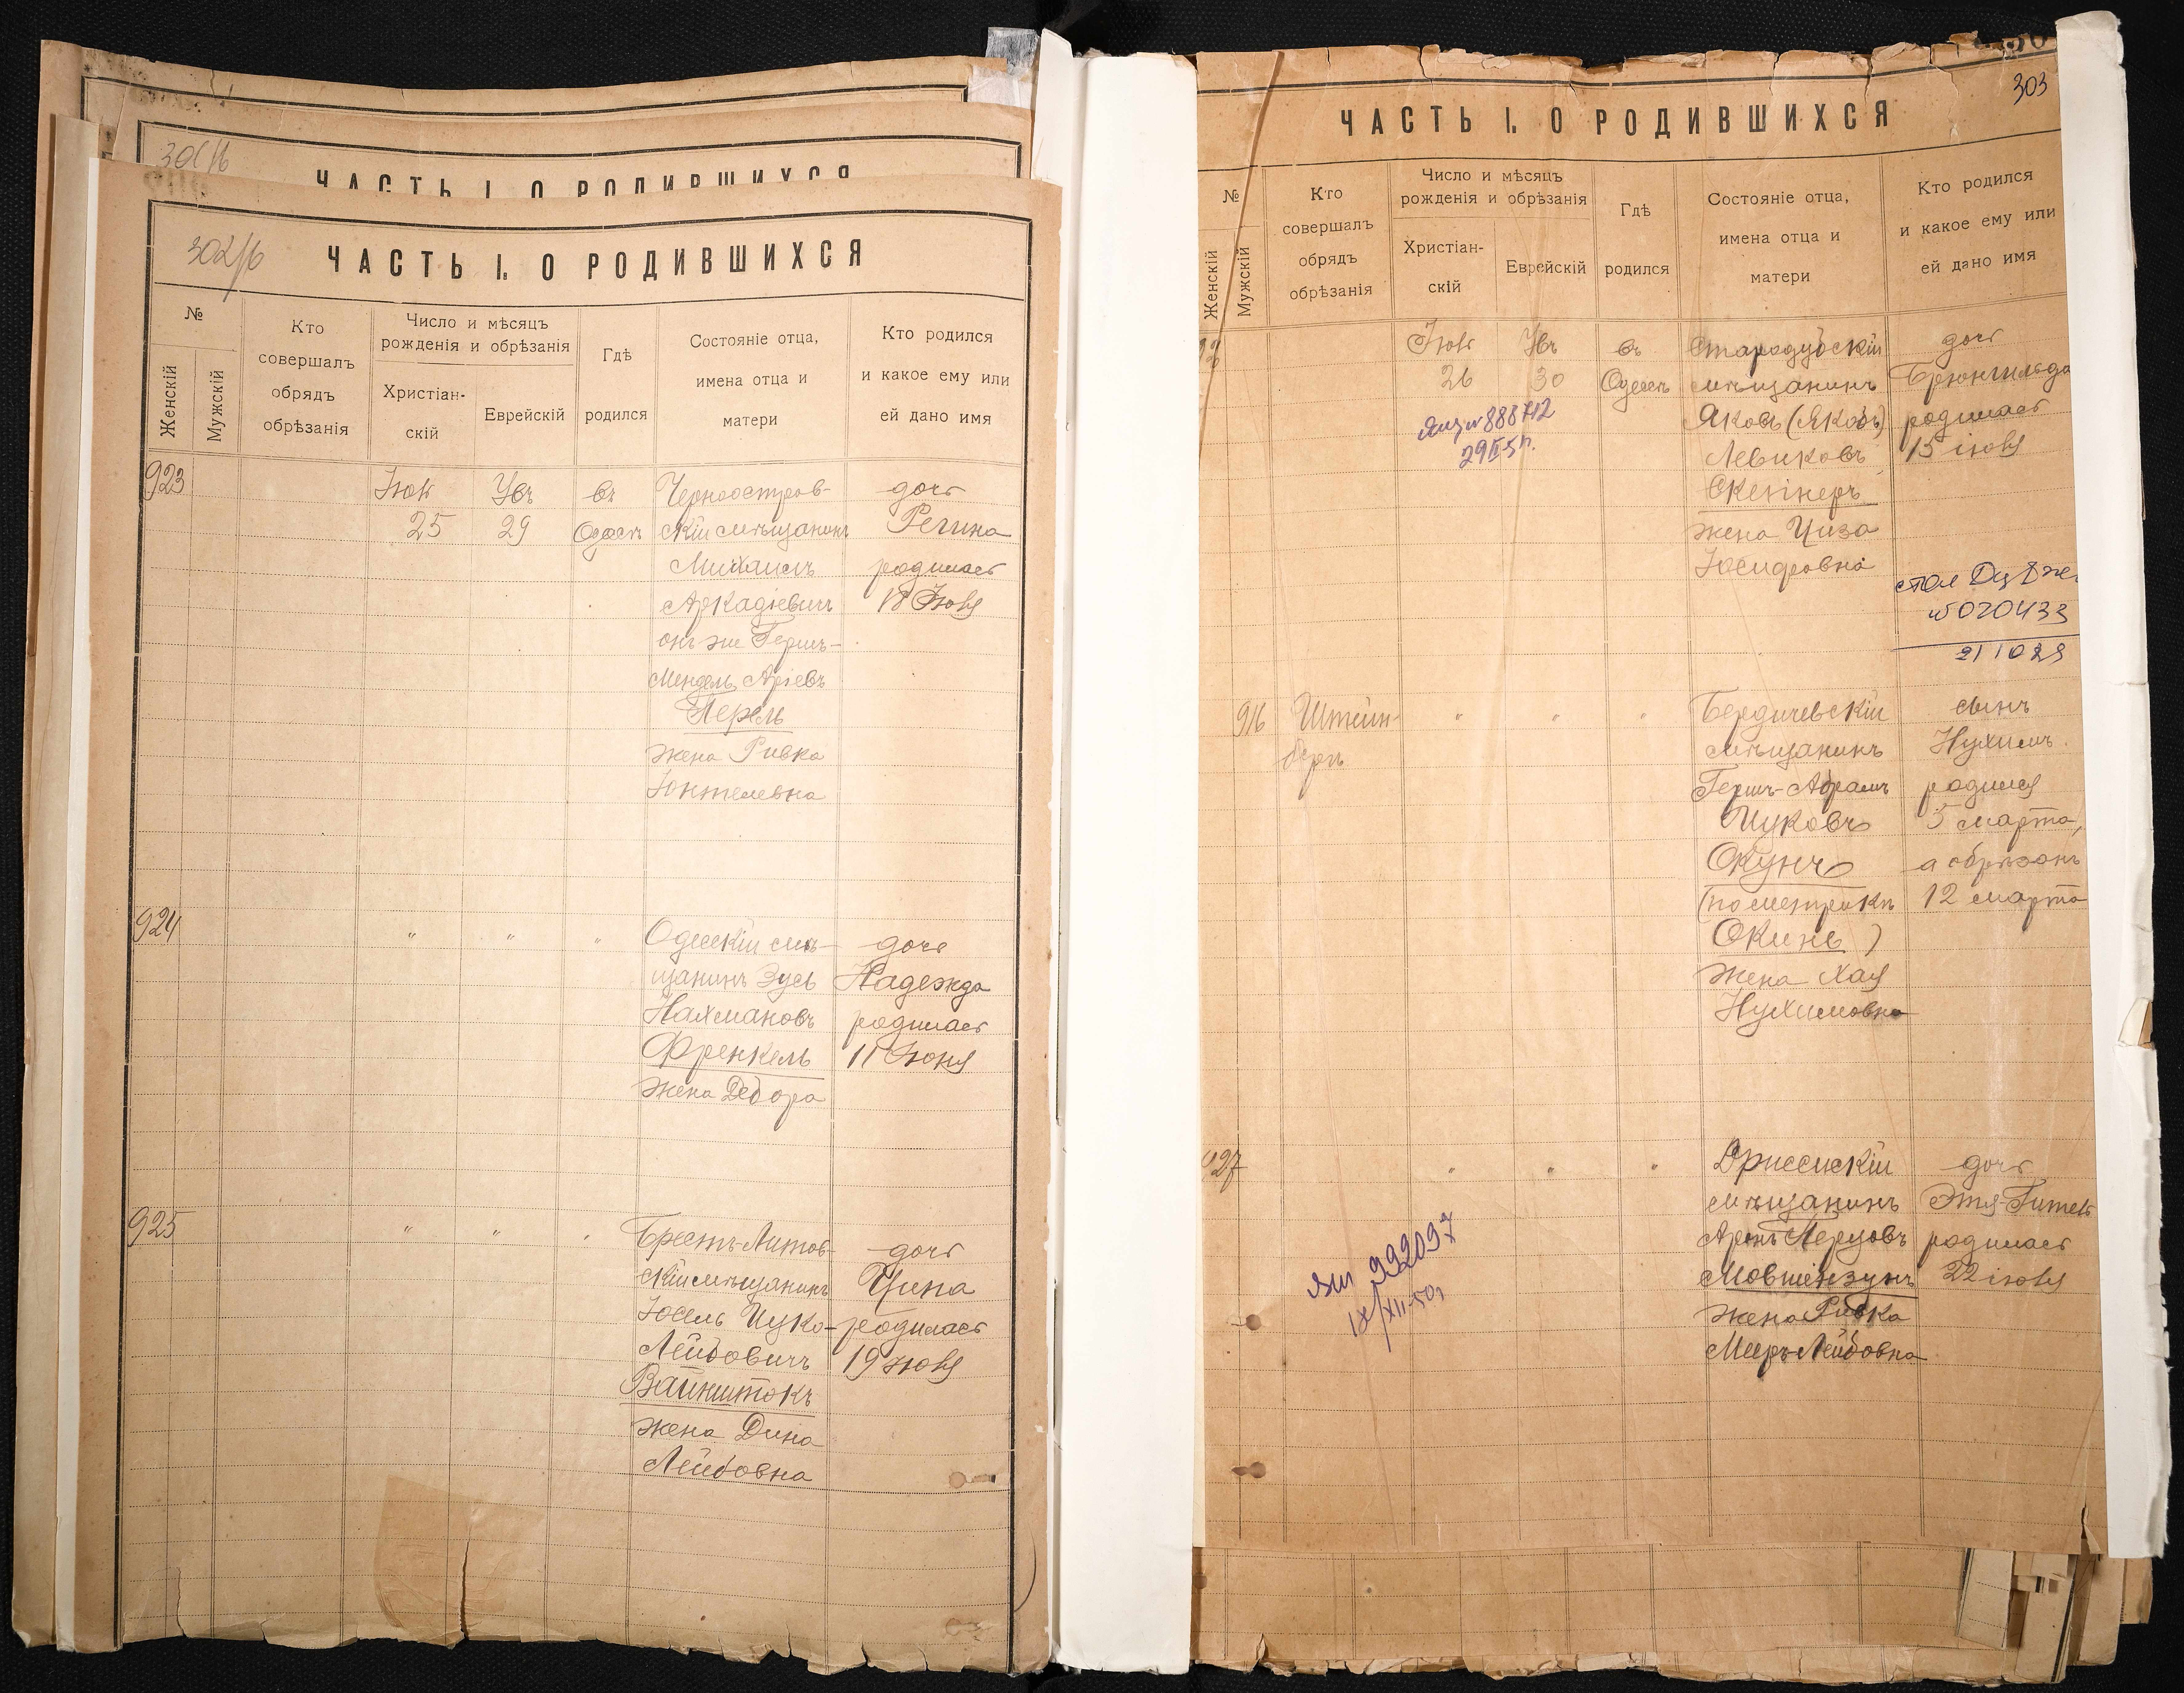 301/б
ЧАСТЬ I. О РОДИВШИХСЯ
302/б
ЧАСТЬ I. О РОДИВШИХСЯ
№
Женскій
Мужскій
Кто
совершалъ
обрядъ
обрѣзанія
Число и мѣсяцъ
рожденія и обрѣзанія
Христіан-
скій
Еврейскій
Гдѣ
родился
Состояніе отца,
имена отца и
матери
Кто родился
и какое ему или
ей дано имя
923
25
29
въ
Одессѣ
Черноостров-
скій мѣщанинъ
Михаилъ
Аркадіевичъ
онъ же Гершъ-
Мендель Аріевъ
Перель
жена Ривка
Юнтелевна
дочь
Регина
родилась
18
924
" " "
Одесскій мѣ-
щанинъ Зусь
Нахмановъ
Френкель
жена Дебора
дочь
Надежда
родилась
11 Іюня
925
" " "
Брестъ-Литов-
скій мѣщанинъ
Іосель Ицко-
Лейбовичъ
Вайнштокъ
жена Дина
Лейбовна
дочь
Ципа
родилась
19
303
ЧАСТЬ I. О РОДИВШИХСЯ
№
Женскій
Мужскій
Кто
совершалъ
обрядъ
обрѣзанія
Число и мѣсяцъ
рожденія и обрѣзанія
Христіан-
скій
Еврейскій
Гдѣ
родился
Состояніе отца,
имена отца и
матери
Кто родился
и какое ему или
ей дано имя
26
30
въ
Одессѣ
Стародубскій
мѣщанинъ
Яковъ (Якобъ)
Левиковъ
жена Циза
Іосифовна
дочь
Брюнгильда
родилась
15
№020433
916
Штейн-
бергъ
" " "
Бердичевскій
мѣщанинъ
Гершъ-Абрамъ
Ицковъ
Окунь
(по метрикѣ
Окинь)
жена Хая
Нухимовна
сынъ
Нухимъ
родился
5 марта,
а обрѣзанъ
12 марта
927
" " "
Дриссенскій
мѣщанинъ
Аронъ Перцовъ
Мовшензунъ
жена Ривка
Мееръ-Лейбовна
дочь
Этя-Гитель
родилась
22
992097
IX/XII-50г